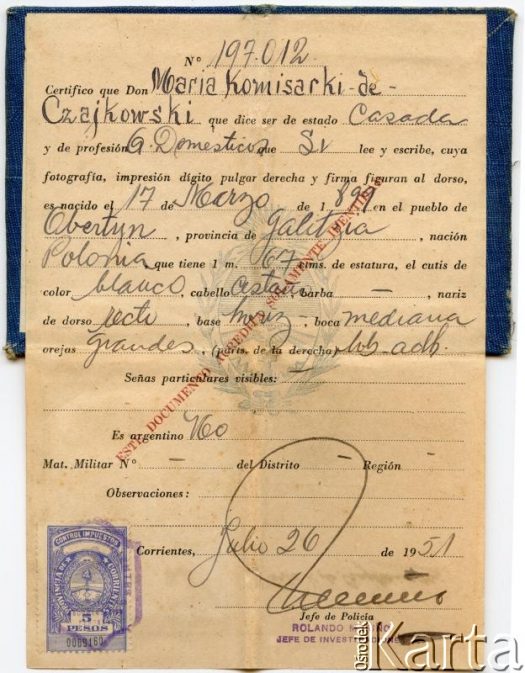 Nº 197.012
Certifico que Don Maria Komisarki - de -
Czajkowski que dice ser de estado Casada
y de profesión Q. Domesticos que Si lee y escribe, cuya
fotografía, impresión dígito pulgar derecha y firma figuran al dorso,
es nacido el 17 de Marzo de 1 899 en el pueblo de
Obertyn, provincia de Galitzia, nación
Polonia que tiene 1 m. 67 cms. de estatura, el cutis de
color blanco, cabello castaño barba —, nariz
de dorso recto, base horiz -, boca mediana
orejas grandes, (parts. de la derecha) lob. adh.
ESTE DOCUMENTO ACREDITA SOLAMENTE IDENTIDAD
Señas particulares visibles:
Es argentino No
Mat. Militar Nº — del Distrito — Región —
Observaciones:
Corrientes, Julio 26 de 1951
Jefe de Policía
ROLANDO
JEFE DE INVESTIGACIONES
CONTROL IMPUESTOS
PROVINCIA DE CORRIENTES
5
PESOS
0069160
Ośrodek Karta